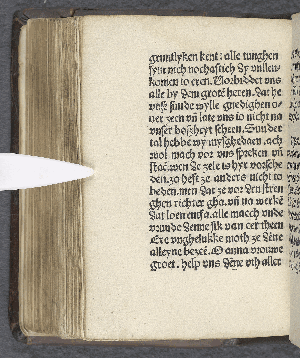 gruntlyken kent: alle tunghen
synt nich nochaftich dy vullen
komen to eren. Vorbiddet vns
alle by dem grote heren. Dat he
vnse sunde wylle gnedighen o
uer zeen vn late vns io nicht na
vnser boszheyt scheen. Sunder
tal hebbe wy mysghedaen, ach
wol mach vor vns spreken vn
staen. wen de zele is hyr vorsche
den. zo heft ze anders nicht to
beden. men dat ze vor den stren
ghen richter gha. vn na werke
dat loen entfa. alle macch vnde
vrunde denne sik van eer theen
Ere vnghelukke moth ze dene
alleyne bezee. O anna vrouwe
groet. help vns dene vth aller